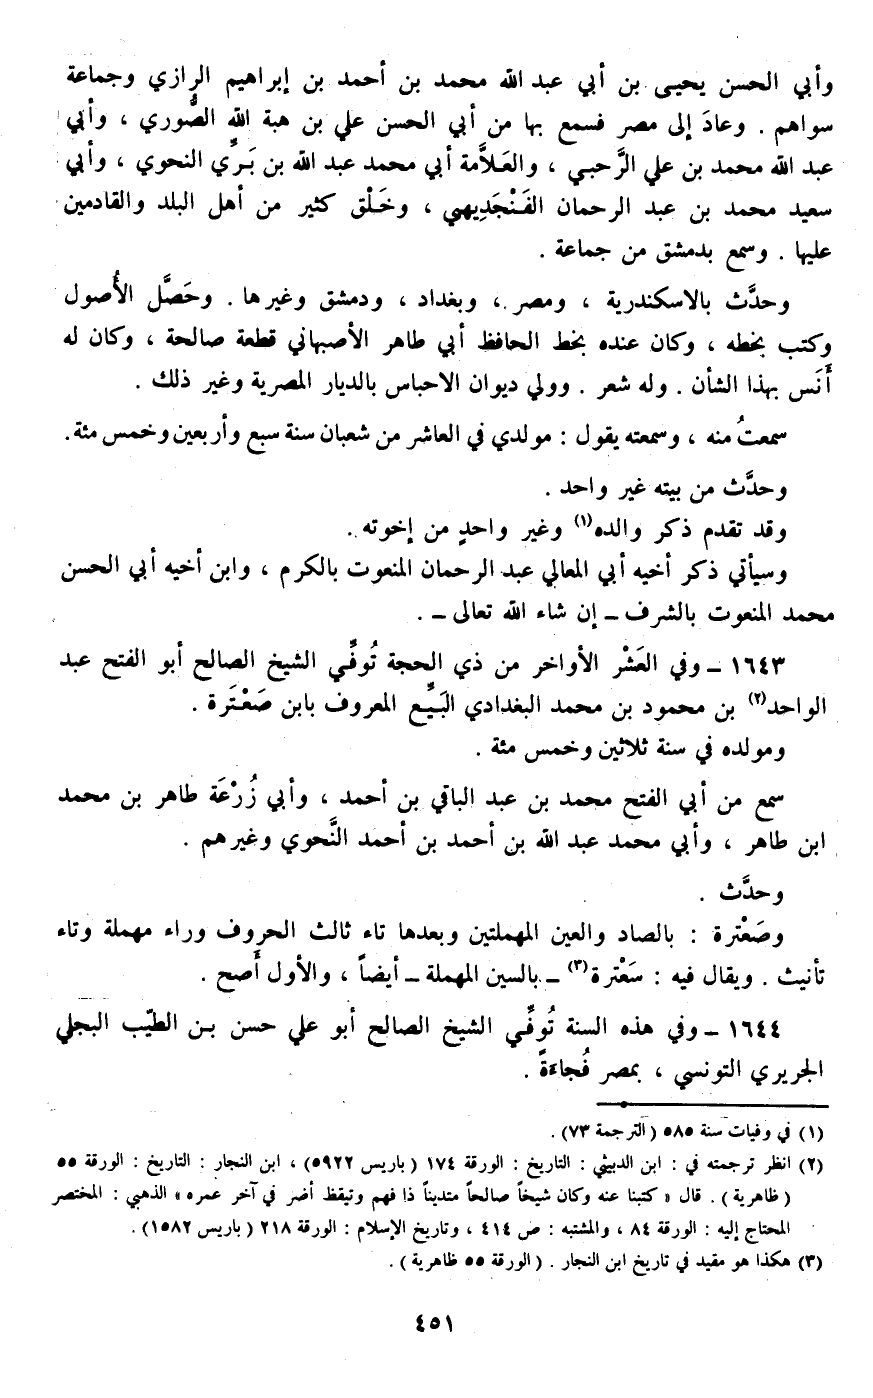 وأبي الحسن يحيى بن أبي عبد الله محمد بن أحمد بن إبراهيم الرازي وجماعة
سواهم . وعادَ إلى مصر فسمع بها من أبي الحسن علي بن هبة الله الصُّوري ، وأبي
عبد الله محمد بن علي الرَّحبي ، والعَلاَّمة أبي محمد عبد الله بن بَرِّي النحوي ، وأبي
سعيد محمد بن عبد الرحمان الفَنْجَدِيهي ، وخَلْق كثير من أهل البلد والقادمين
عليها . وسمع بدمشق من جماعة .
وحدَّث بالاسكندرية ، ومصر ، وبغداد ، ودمشق وغيرها . وحَصَّل الأُصول
وكتب بخطه ، وكان عنده بخط الحافظ أبي طاهر الأصبهاني قطعة صالحة ، وكان له
أَنَس بهذا الشأن . وله شعر . وولي ديوان الاحباس بالديار المصرية وغير ذلك .
سمعتُ منه ، وسمعته يقول : مولدي في العاشر من شعبان سنة سبع وأربعين وخمس مئة .
وحدَّث من بيته غير واحد .
وقد تقدم ذكر والده(١) وغير واحدٍ من إخوته .
وسيأتي ذكر أخيه أبي المعالي عبد الرحمان المنعوت بالكرم ، وابن أخيه أبي الحسن
محمد المنعوت بالشرف ــ إن شاء الله تعالى ــ .
١٦٤٣ ــ وفي العَشْر الأواخر من ذي الحجة تُوفِّي الشيخ الصالح أبو الفتح عبد
الواحد(٢) بن محمود بن محمد البغدادي البَيِّع المعروف بابن صَعْتَرة .
ومولده في سنة ثلاثين وخمس مئة .
سمع من أبي الفتح محمد بن عبد الباقي بن أحمد ، وأبي زُرْعَة طاهر بن محمد
ابن طاهر ، وأبي محمد عبد الله بن أحمد بن أحمد النَّحوي وغيرهم .
وحدَّث .
وصَعْترة : بالصاد والعين المهملتين وبعدها تاء ثالث الحروف وراء مهملة وتاء
تأنيث . ويقال فيه : سَعْترة(٣) ــ بالسين المهملة ــ أيضاً ، والأول أَصح .
١٦٤٤ ــ وفي هذه السنة تُوفِّي الشيخ الصالح أبو علي حسن بن الطيّب البجلي
الجريري التونسي ، بمصر فُجاءةً .
(١) في وفيات سنة ٥٨٥ (الترجمة ٧٣) .
(٢) انظر ترجمته في : ابن الدبيثي : التاريخ : الورقة ١٧٤ (باريس ٥٩٢٢) ، ابن النجار : التاريخ : الورقة ٥٥
(ظاهرية) . قال « كتبنا عنه وكان شيخاً صالحاً متديناً ذا فهم وتيقظ أضر في آخر عمره » الذهبي : المختصر
المحتاج إليه : الورقة ٨٤ ، والمشتبه : ص ٤١٤ ، وتاريخ الإسلام : الورقة ٢١٨ (باريس ١٥٨٢) .
(٣) هكذا هو مقيد في تاريخ ابن النجار . (الورقة ٥٥ ظاهرية) .
٤٥١